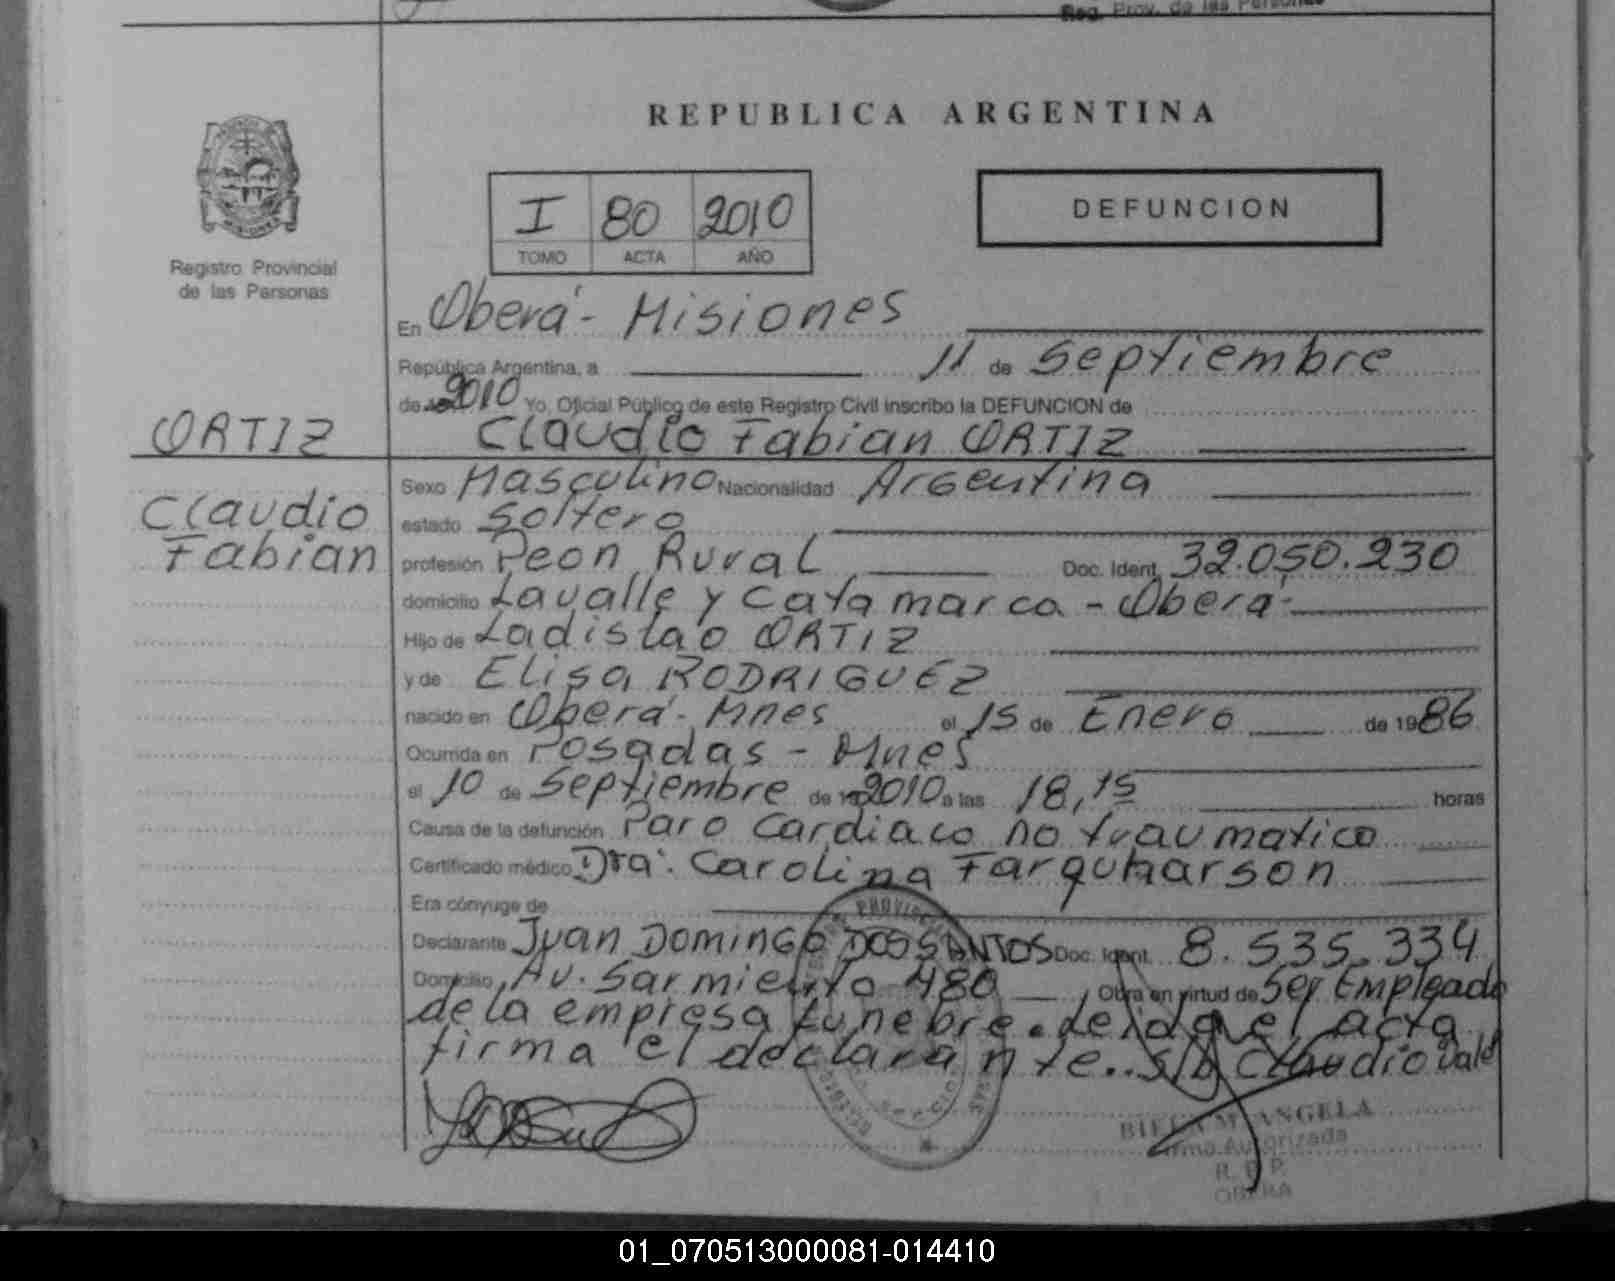 Reg. Prov. de las Personas
REPUBLICA ARGENTINA
I 80 2010
TOMO ACTA AÑO
DEFUNCION
Registro Provincial
de las Personas
En Oberá - Misiones
República Argentina, a 11 de Septiembre
de 2010 Yo, Oficial Público de este Registro Civil inscribo la DEFUNCION de
ORTIZ Claudio Fabian ORTIZ
Sexo Masculino Nacionalidad Argentina
Claudio estado Soltero
Fabian profesión Peon Rural Doc. Ident. 32.050.230
domicilio Lavalle y Catamarca - Oberá -
Hijo de Ladislao ORTIZ
y de Elisa RODRIGUEZ
nacido en Oberá - Mnes el 15 de Enero de 1986
Ocurrida en Posadas - Mnes
el 10 de Septiembre de 2010 a las 18,15 horas
Causa de la defunción Paro Cardiaco no traumatico
Certificado médico Dra: Carolina Farquharson
Era cónyuge de
Declarante Juan Domingo DOS SANTOS Doc. Ident. 8.535.334
Domicilio Av. Sarmiento 480 Obra en virtud de Ser Empleado
de la empresa funebre. Leida el acta
firma el declarante.. s/b Claudio Vale
ANGELA
Firma Autorizada
R. P. P.
OBERA
01_070513000081-014410